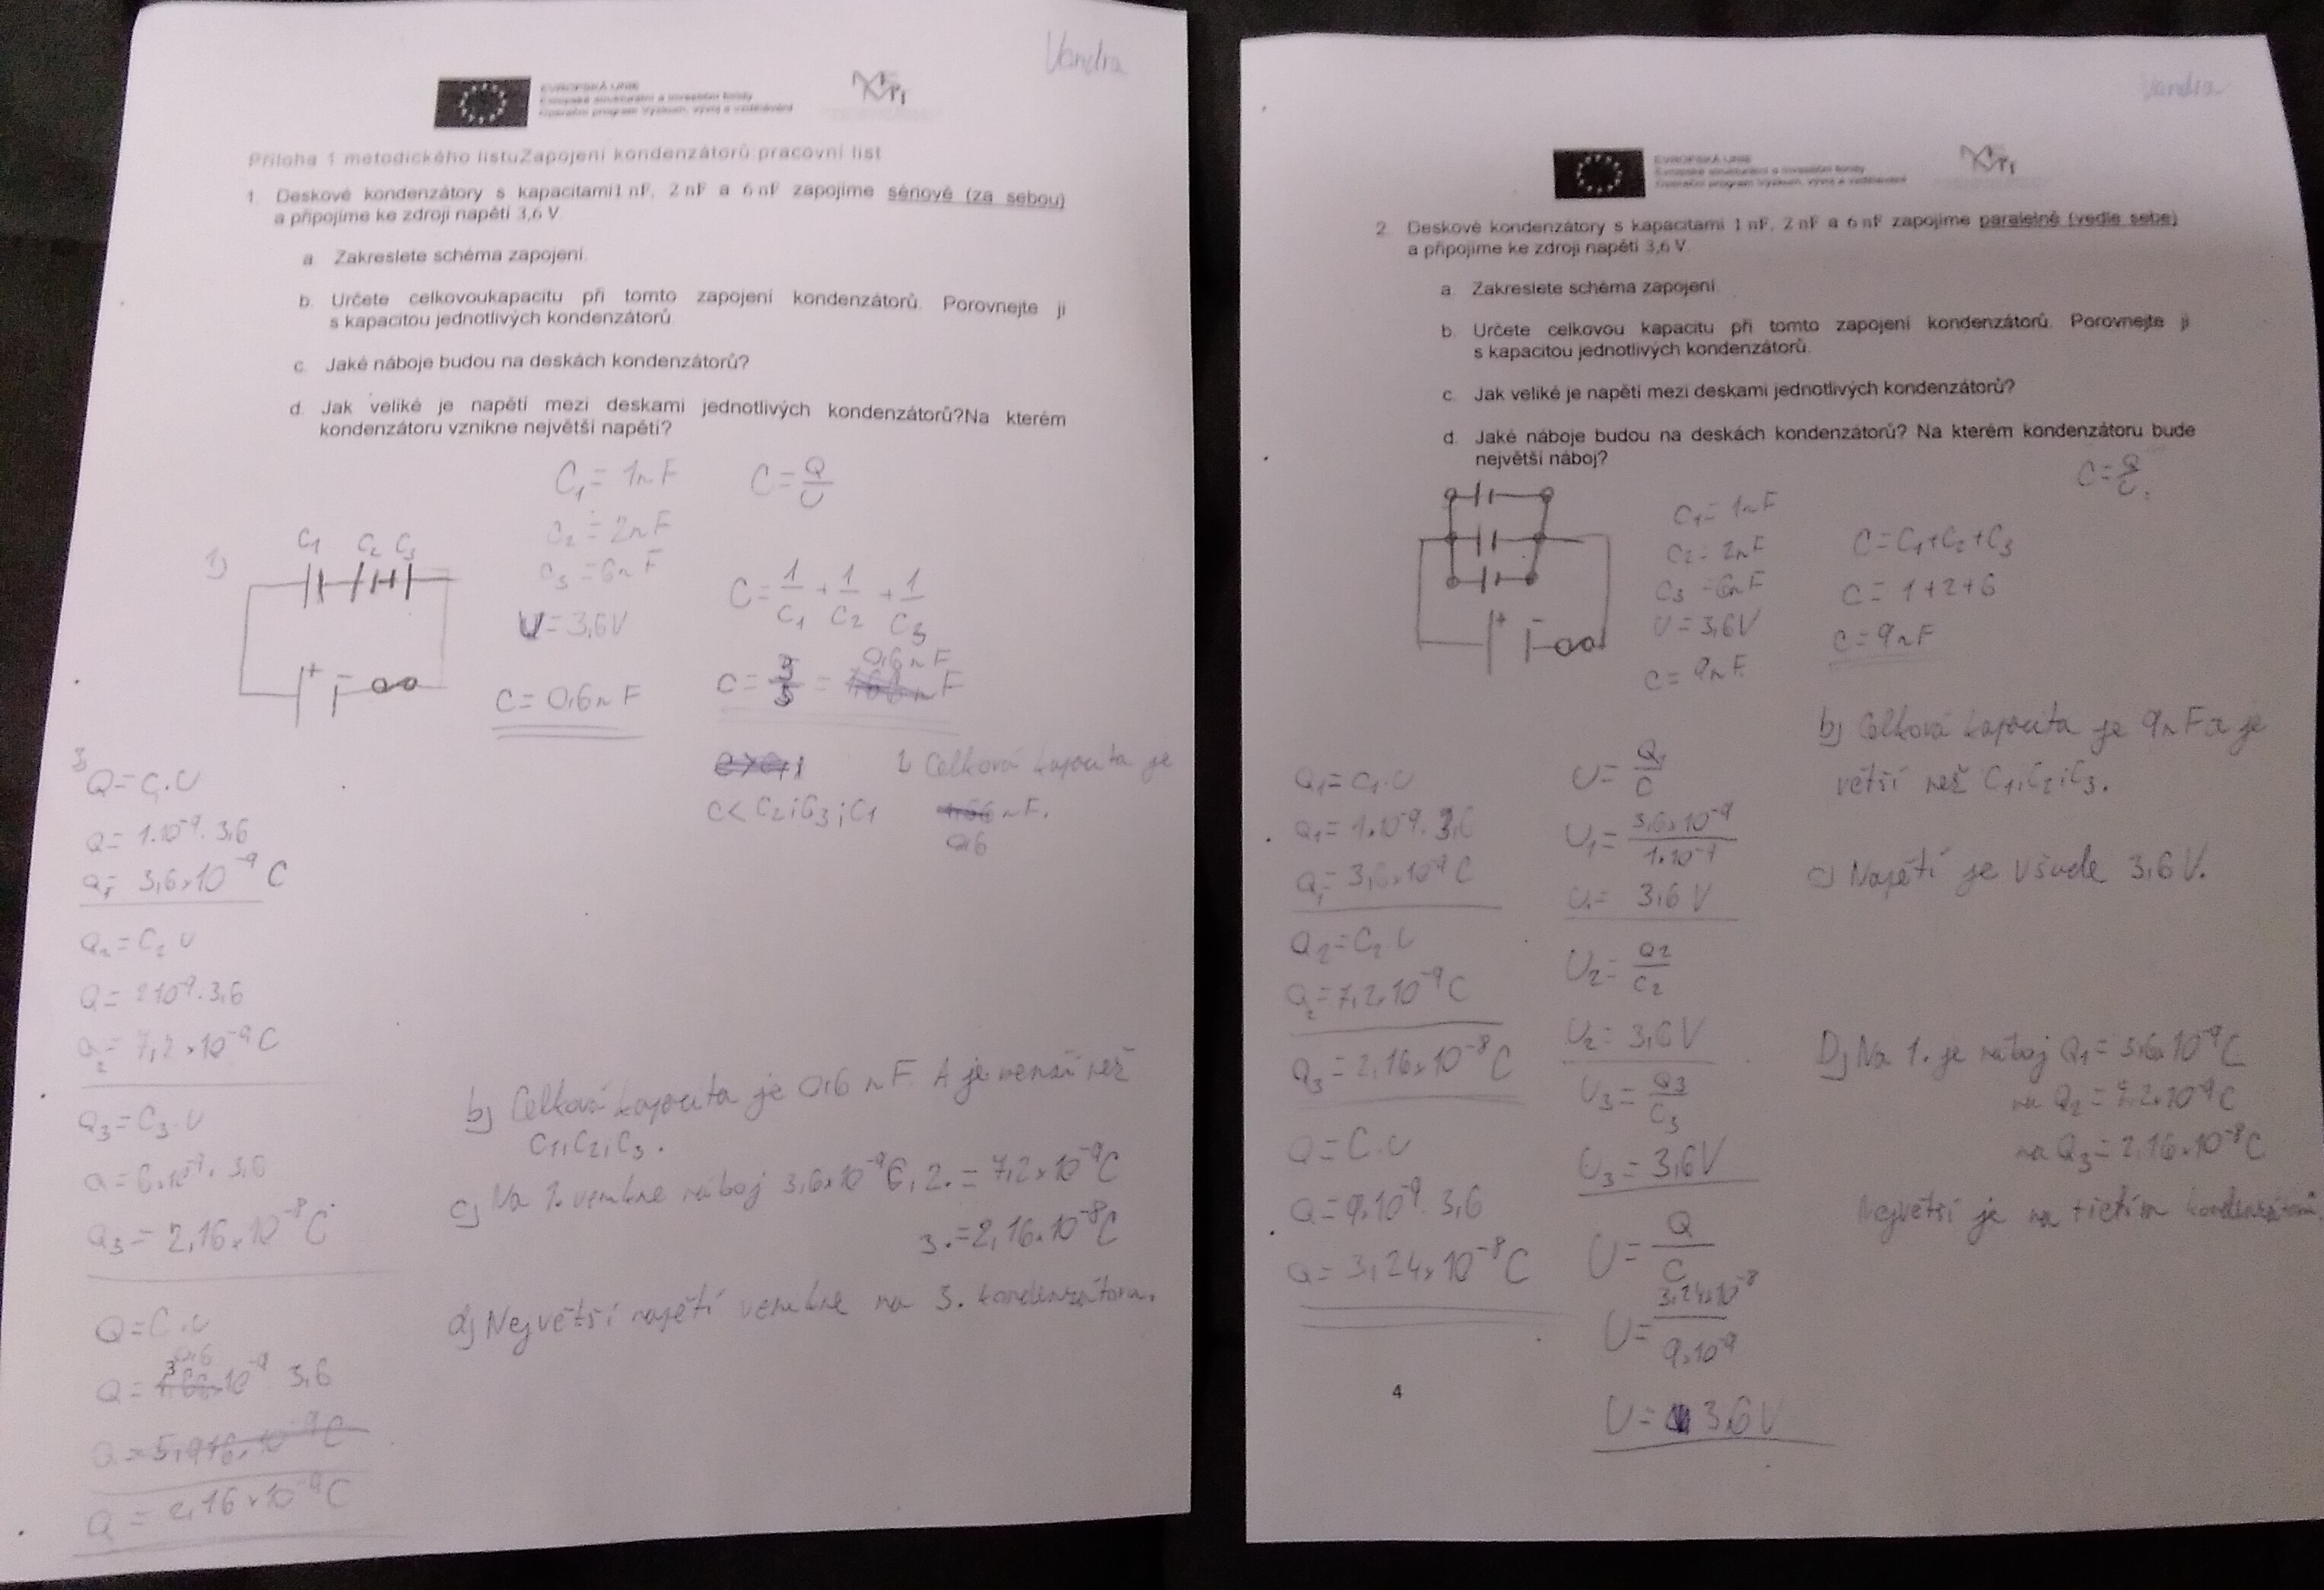 Vandra
EVROPSKÁ UNIE
Evropské strukturální a investiční fondy
Operační program Výzkum, vývoj a vzdělávání
Příloha 1 metodického listuZapojení kondenzátorů pracovní list
1. Deskové kondenzátory s kapacitami1 nF, 2 nF a 6 nF zapojíme sériově (za sebou)
a připojíme ke zdroji napětí 3,6 V.
a. Zakreslete schéma zapojení.
b. Určete celkovoukapacitu při tomto zapojení kondenzátorů. Porovnejte ji
s kapacitou jednotlivých kondenzátorů.
c. Jaké náboje budou na deskách kondenzátorů?
d. Jak veliké je napětí mezi deskami jednotlivých kondenzátorů?Na kterém
kondenzátoru vznikne největší napětí?
C1 = 1nF
C = Q/U
C2 = 2nF
C3 = 6nF
U = 3,6V
C = 0,6nF
1)
C1 C2 C3
+ -
C = 1/C1 + 1/C2 + 1/C3
C = 3/5 = 0,6nF
C < C2; C3; C1
Celková kapacita je
0,6 nF.
Q = C1.U
Q = 1.10⁻⁹. 3,6
Q1 = 3,6×10⁻⁹ C
Q2 = C2 U
Q = 2 10⁻⁹. 3,6
Q2 = 7,2×10⁻⁹ C
Q3 = C3.U
Q = 6×10⁻⁹. 3,6
Q3 = 2,16×10⁻⁸ C
Q = C.U
Q = 0,6 10⁻⁹ 3,6
Q = 5,976×10⁻⁹ C
Q = 2,16×10⁻⁹ C
b) Celková kapacita je 0,6 nF. A je menší než
C1, C2, C3.
c) Na 1. vznikne náboj 3,6×10⁻⁹ C, 2. = 7,2×10⁻⁹ C
3. = 2,16×10⁻⁸ C
d) Největší napětí vznikne na 3. kondenzátoru.
Vandra
EVROPSKÁ UNIE
Evropské strukturální a investiční fondy
Operační program Výzkum, vývoj a vzdělávání
2. Deskové kondenzátory s kapacitami 1 nF, 2 nF a 6 nF zapojíme paralelně (vedle sebe)
a připojíme ke zdroji napětí 3,6 V.
a. Zakreslete schéma zapojení.
b. Určete celkovou kapacitu při tomto zapojení kondenzátorů. Porovnejte ji
s kapacitou jednotlivých kondenzátorů.
c. Jak veliké je napětí mezi deskami jednotlivých kondenzátorů?
d. Jaké náboje budou na deskách kondenzátorů? Na kterém kondenzátoru bude
největší náboj?
C = Q/U
+ -
C1 = 1nF
C2 = 2nF
C3 = 6nF
U = 3,6V
C = 9nF
C = C1 + C2 + C3
C = 1 + 2 + 6
C = 9nF
b) Celková kapacita je 9nF a je
větší než C1, C2, C3.
c) Napětí je všude 3,6 V.
D) Na 1. je náboj Q1 = 3,6×10⁻⁹ C
na Q2 = 7,2×10⁻⁹ C
na Q3 = 2,16×10⁻⁸ C
Největší je na třetím kondenzátoru.
Q1 = C1.U
Q1 = 1×10⁻⁹. 3,6
Q1 = 3,6×10⁻⁹ C
Q2 = C2.U
Q2 = 7,2×10⁻⁹ C
Q3 = 2,16×10⁻⁸ C
Q = C.U
Q = 9×10⁻⁹. 3,6
Q = 3,24×10⁻⁸ C
U = Q1/C
U1 = 3,6×10⁻⁹/1×10⁻⁹
U1 = 3,6 V
U2 = Q2/C2
U2 = 3,6V
U3 = Q3/C3
U3 = 3,6V
U = Q/C
U = 3,24×10⁻⁸/9×10⁻⁹
U = 3,6V
4